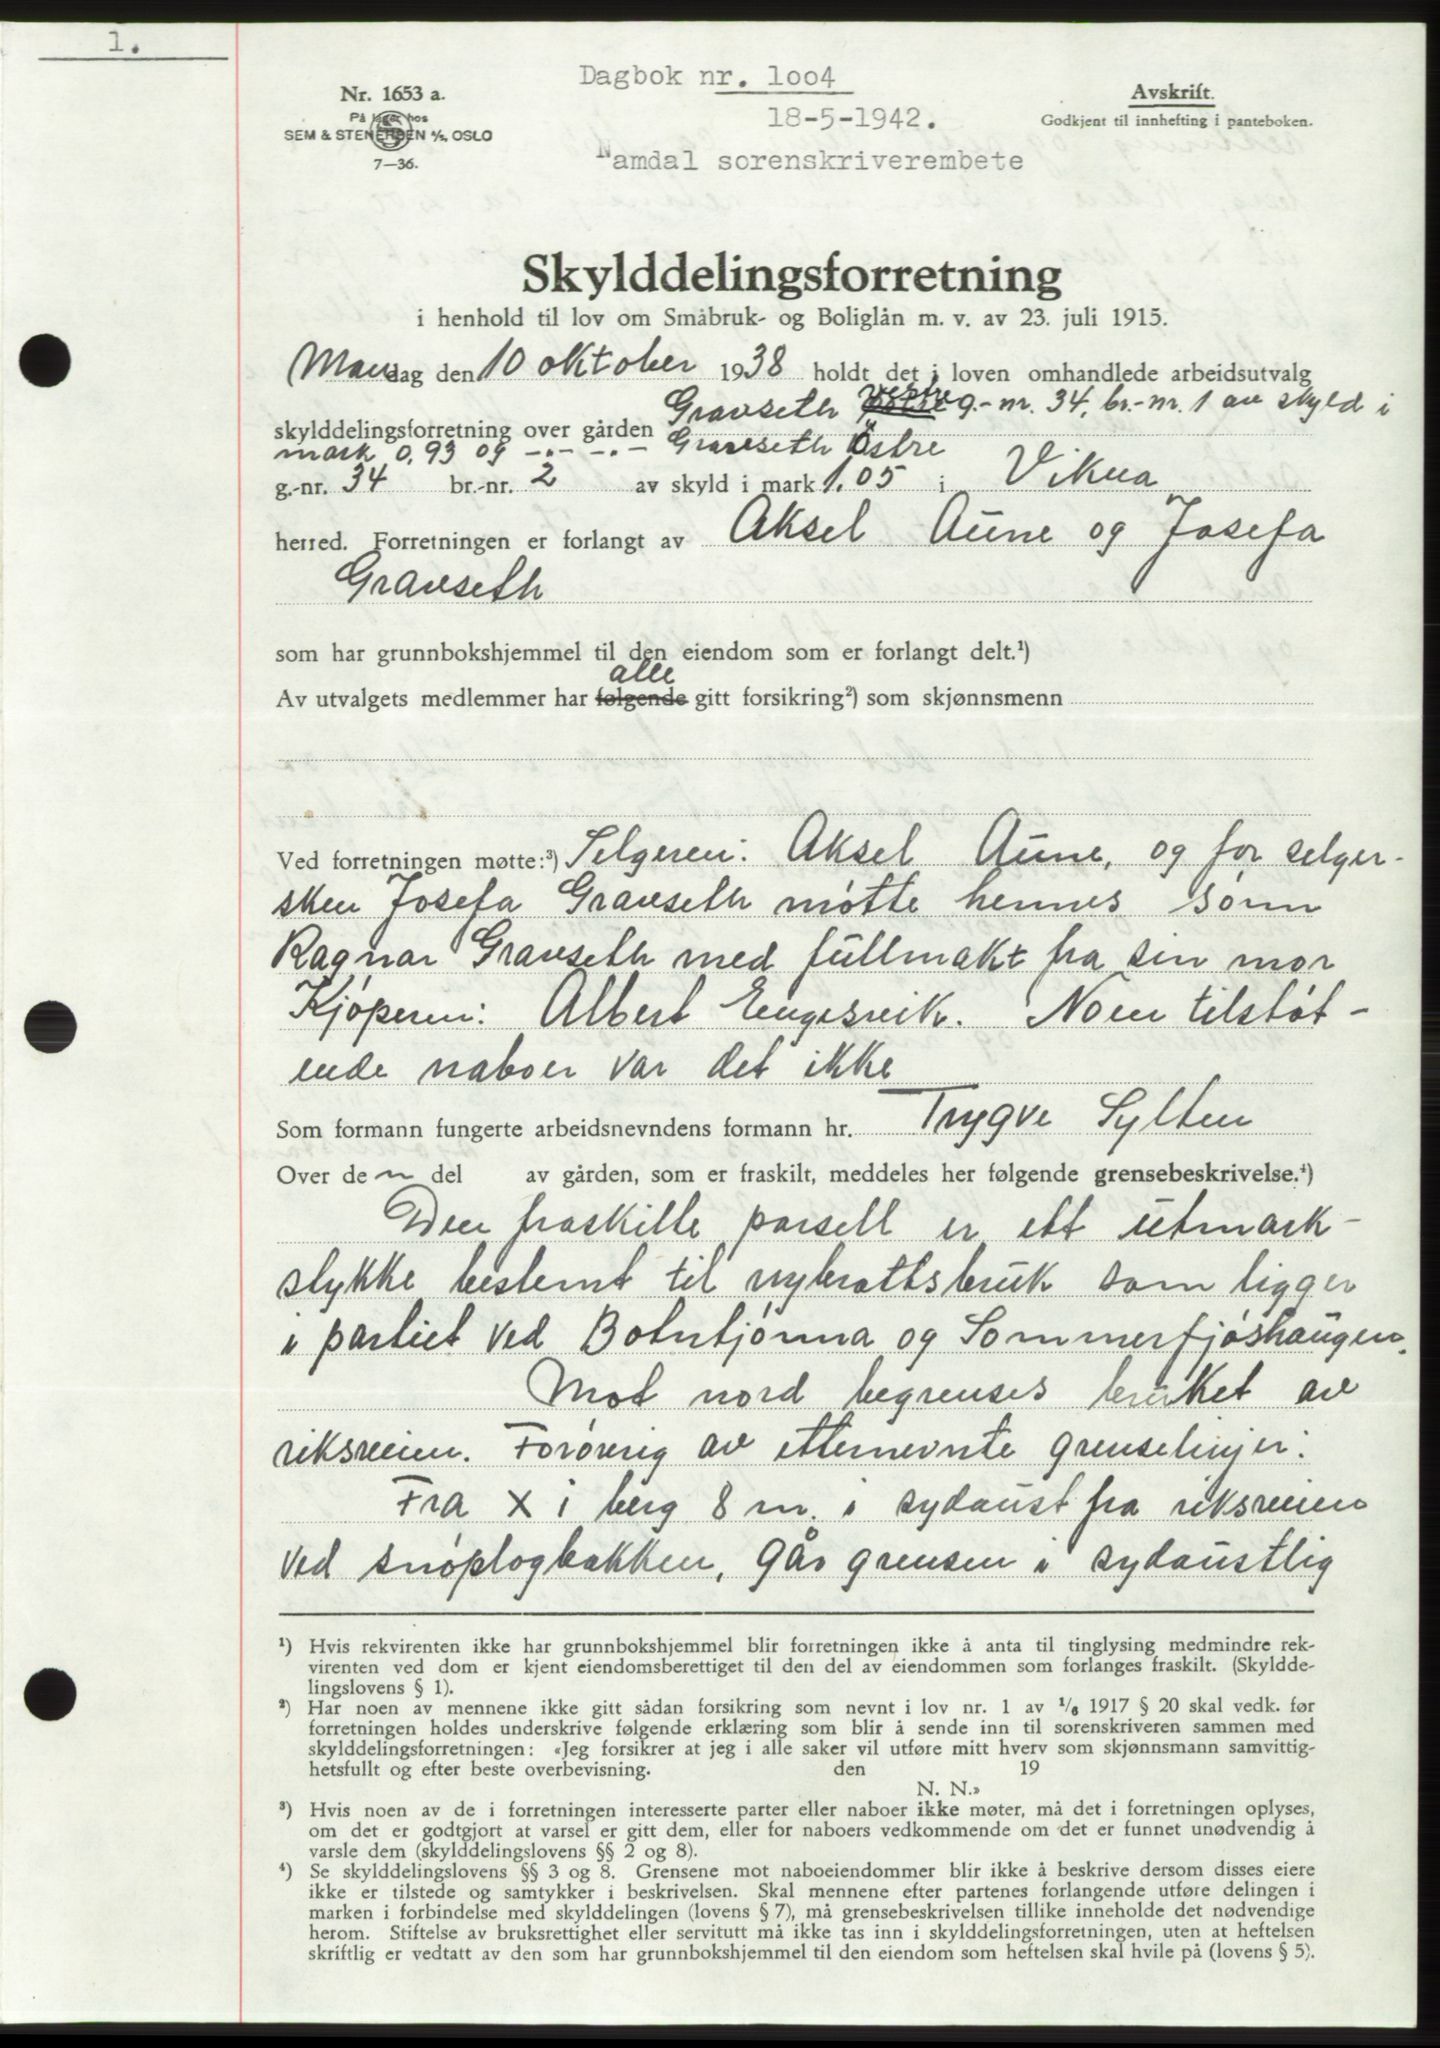 1.
Dagbok nr. 1oo4
18-5-1942.
Namdal sorenskriverembete
Nr. 1653 a.
På lager hos
SEM & STENERSEN A/S, OSLO
7—36.
Avskrift.
Godkjent til innhefting i panteboken.
Skylddelingsforretning
i henhold til lov om Småbruk- og Boliglån m. v. av 23. juli 1915.
Mandag den 10 oktober 1938 holdt det i loven omhandlede arbeidsutvalg
skylddelingsforretning over gården Gravseth vestre g.-nr. 34, br.-nr. 1 av skyld i
mark 0,93 og -.- -.- Gravseth Östre
g.-nr. 34 br.-nr. 2 av skyld i mark 1.05 i Vikna
herred. Forretningen er forlangt av Aksel Aune og Josefa
Gravseth
som har grunnbokshjemmel til den eiendom som er forlangt delt.¹)
Av utvalgets medlemmer har følgende alle gitt forsikring²) som skjønnsmenn
Ved forretningen møtte:³) Selgeren: Aksel Aune, og for selger-
sken Josefa Gravseth møtte hennes sønn
Ragnar Gravseth med fullmakt fra sin mor
Kjøperen: Albert Engesvik. Noen tilstøt-
ende naboer var det ikke
Som formann fungerte arbeidsnevndens formann hr. Trygve Sylten
Over den del av gården, som er fraskilt, meddeles her følgende grensebeskrivelse.⁴)
Den fraskilte parsell er ett utmark-
stykke bestemt til nybrottsbruk som ligger
i partiet ved Botntjønna og Sommerfjøshaugen.
Mot nord begrenses bruket av
riksveien. Forøvrig av etternevnte grenselinjer:
Fra X i berg 8 m. i sydaust fra riksveien
ved snøplogbakken, går grensen i sydaustlig
¹) Hvis rekvirenten ikke har grunnbokshjemmel blir forretningen ikke å anta til tinglysing medmindre rek-
virenten ved dom er kjent eiendomsberettiget til den del av eiendommen som forlanges fraskilt. (Skyldde-
lingslovens § 1).
²) Har noen av mennene ikke gitt sådan forsikring som nevnt i lov nr. 1 av 1/6 1917 § 20 skal vedk. før
forretningen holdes underskrive følgende erklæring som blir å sende inn til sorenskriveren sammen med
skylddelingsforretningen: «Jeg forsikrer at jeg i alle saker vil utføre mitt hverv som skjønnsmann samvittig-
hetsfullt og efter beste overbevisning. den 19
N. N.»
³) Hvis noen av de i forretningen interesserte parter eller naboer ikke møter, må det i forretningen oplyses,
om det er godtgjort at varsel er gitt dem, eller for naboers vedkommende om det er funnet unødvendig å
varsle dem (skylddelingslovens §§ 2 og 8).
⁴) Se skylddelingslovens §§ 3 og 8. Grensene mot naboeiendommer blir ikke å beskrive dersom disses eiere
ikke er tilstede og samtykker i beskrivelsen. Skal mennene efter partenes forlangende utføre delingen i
marken i forbindelse med skylddelingen (lovens § 7), må grensebeskrivelsen tillike inneholde det nødvendige
herom. Stiftelse av bruksrettighet eller servitutt må ikke tas inn i skylddelingsforretningen, uten at heftelsen
skriftlig er vedtatt av den som har grunnbokshjemmel til den eiendom som heftelsen skal hvile på (lovens § 5).